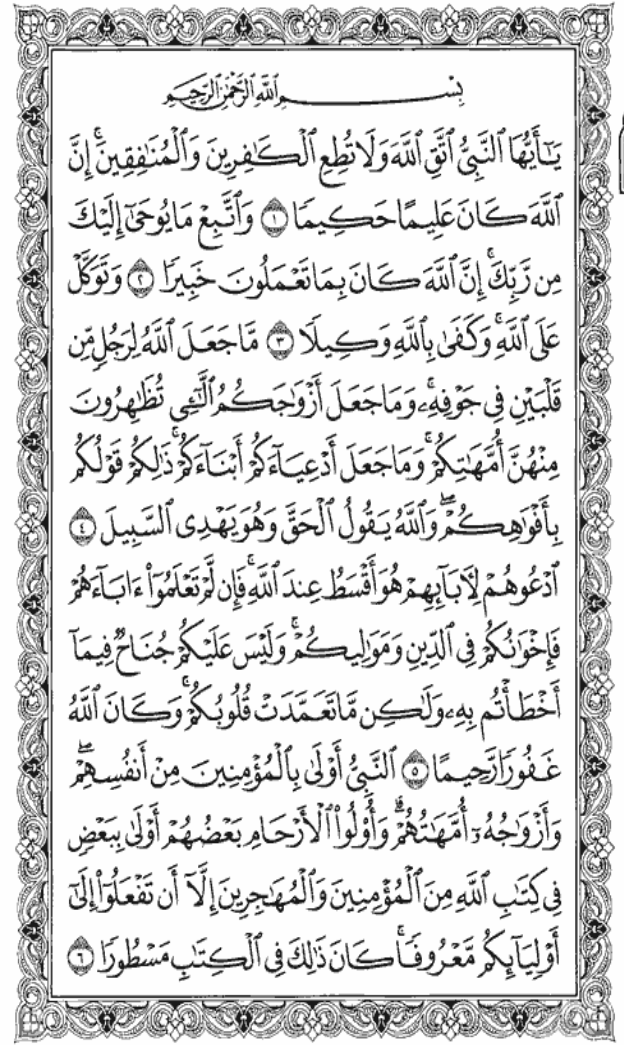 بِسْمِ اللَّهِ الرَّحْمَٰنِ الرَّحِيمِ
يَـٰٓأَيُّهَا ٱلنَّبِىُّ ٱتَّقِ ٱللَّهَ وَلَا تُطِعِ ٱلْكَـٰفِرِينَ وَٱلْمُنَـٰفِقِينَ ۗ إِنَّ
ٱللَّهَ كَانَ عَلِيمًا حَكِيمًا ١ وَٱتَّبِعْ مَا يُوحَىٰٓ إِلَيْكَ
مِن رَّبِّكَ ۚ إِنَّ ٱللَّهَ كَانَ بِمَا تَعْمَلُونَ خَبِيرًا ٢ وَتَوَكَّلْ
عَلَى ٱللَّهِ ۚ وَكَفَىٰ بِٱللَّهِ وَكِيلًا ٣ مَّا جَعَلَ ٱللَّهُ لِرَجُلٍ مِّن
قَلْبَيْنِ فِى جَوْفِهِۦ ۚ وَمَا جَعَلَ أَزْوَٰجَكُمُ ٱلَّـٰٓـِٔى تُظَـٰهِرُونَ
مِنْهُنَّ أُمَّهَـٰتِكُمْ ۚ وَمَا جَعَلَ أَدْعِيَآءَكُمْ أَبْنَآءَكُمْ ۚ ذَٰلِكُمْ قَوْلُكُم
بِأَفْوَٰهِكُمْ ۖ وَٱللَّهُ يَقُولُ ٱلْحَقَّ وَهُوَ يَهْدِى ٱلسَّبِيلَ ٤
ٱدْعُوهُمْ لِـَٔابَآئِهِمْ هُوَ أَقْسَطُ عِندَ ٱللَّهِ ۚ فَإِن لَّمْ تَعْلَمُوٓا۟ ءَابَآءَهُمْ
فَإِخْوَٰنُكُمْ فِى ٱلدِّينِ وَمَوَٰلِيكُمْ ۚ وَلَيْسَ عَلَيْكُمْ جُنَاحٌ فِيمَآ
أَخْطَأْتُم بِهِۦ وَلَـٰكِن مَّا تَعَمَّدَتْ قُلُوبُكُمْ ۚ وَكَانَ ٱللَّهُ
غَفُورًا رَّحِيمًا ٥ ٱلنَّبِىُّ أَوْلَىٰ بِٱلْمُؤْمِنِينَ مِنْ أَنفُسِهِمْ ۖ
وَأَزْوَٰجُهُۥٓ أُمَّهَـٰتُهُمْ ۗ وَأُو۟لُوا۟ ٱلْأَرْحَامِ بَعْضُهُمْ أَوْلَىٰ بِبَعْضٍ
فِى كِتَـٰبِ ٱللَّهِ مِنَ ٱلْمُؤْمِنِينَ وَٱلْمُهَـٰجِرِينَ إِلَّآ أَن تَفْعَلُوٓا۟ إِلَىٰٓ
أَوْلِيَآئِكُم مَّعْرُوفًا ۚ كَانَ ذَٰلِكَ فِى ٱلْكِتَـٰبِ مَسْطُورًا ٦